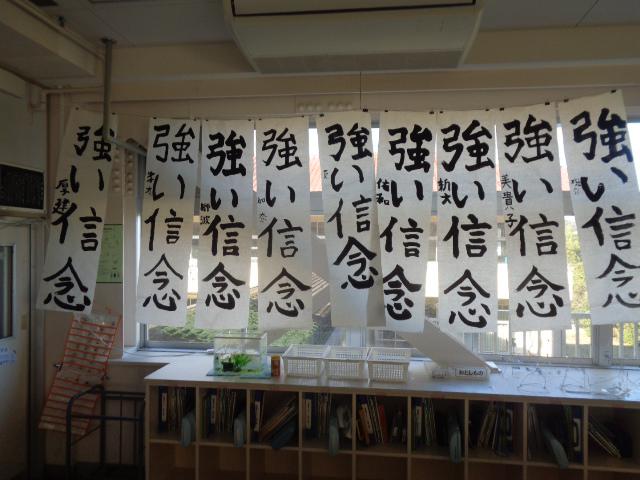 強い信念
厚建
強い信念
強い信念
強い信念
強い信念
強い信念
佑和
強い信念
強い信念
美貴子
強い信念
おとしもの